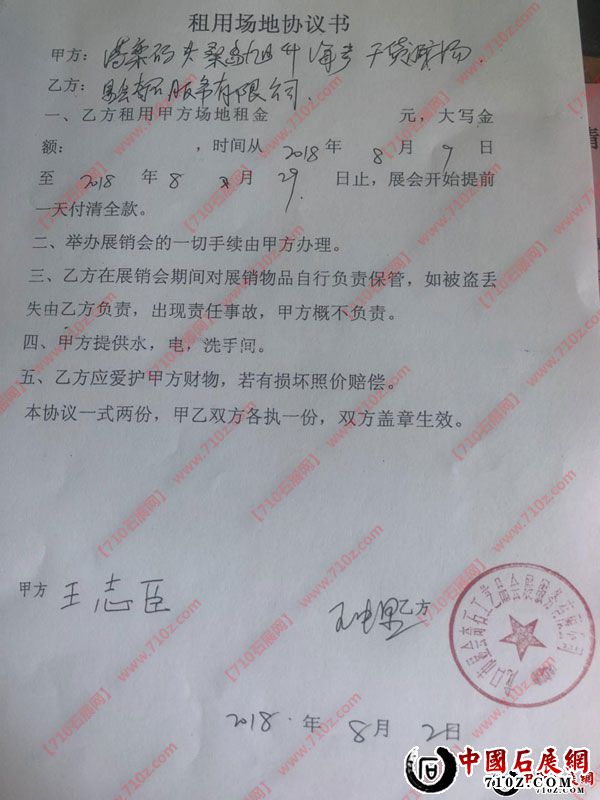 租用场地协议书
甲方：
乙方：易会奇石服务有限公司.
一、乙方租用甲方场地租金 元，大写金
额： ，时间从 2018 年 8 月 9 日
至 2018 年 8 月 29 日止，展会开始提前
一天付清全款。
二、举办展销会的一切手续由甲方办理。
三、乙方在展销会期间对展销物品自行负责保管，如被盗丢
失由乙方负责，出现责任事故，甲方概不负责。
四、甲方提供水，电，洗手间。
五、乙方应爱护甲方财物，若有损坏照价赔偿。
本协议一式两份，甲乙双方各执一份，双方盖章生效。
甲方 王志臣
乙方
2018. 年 8 月 2 日
【710石展网】www.710z.com
中國石展網
710z.com